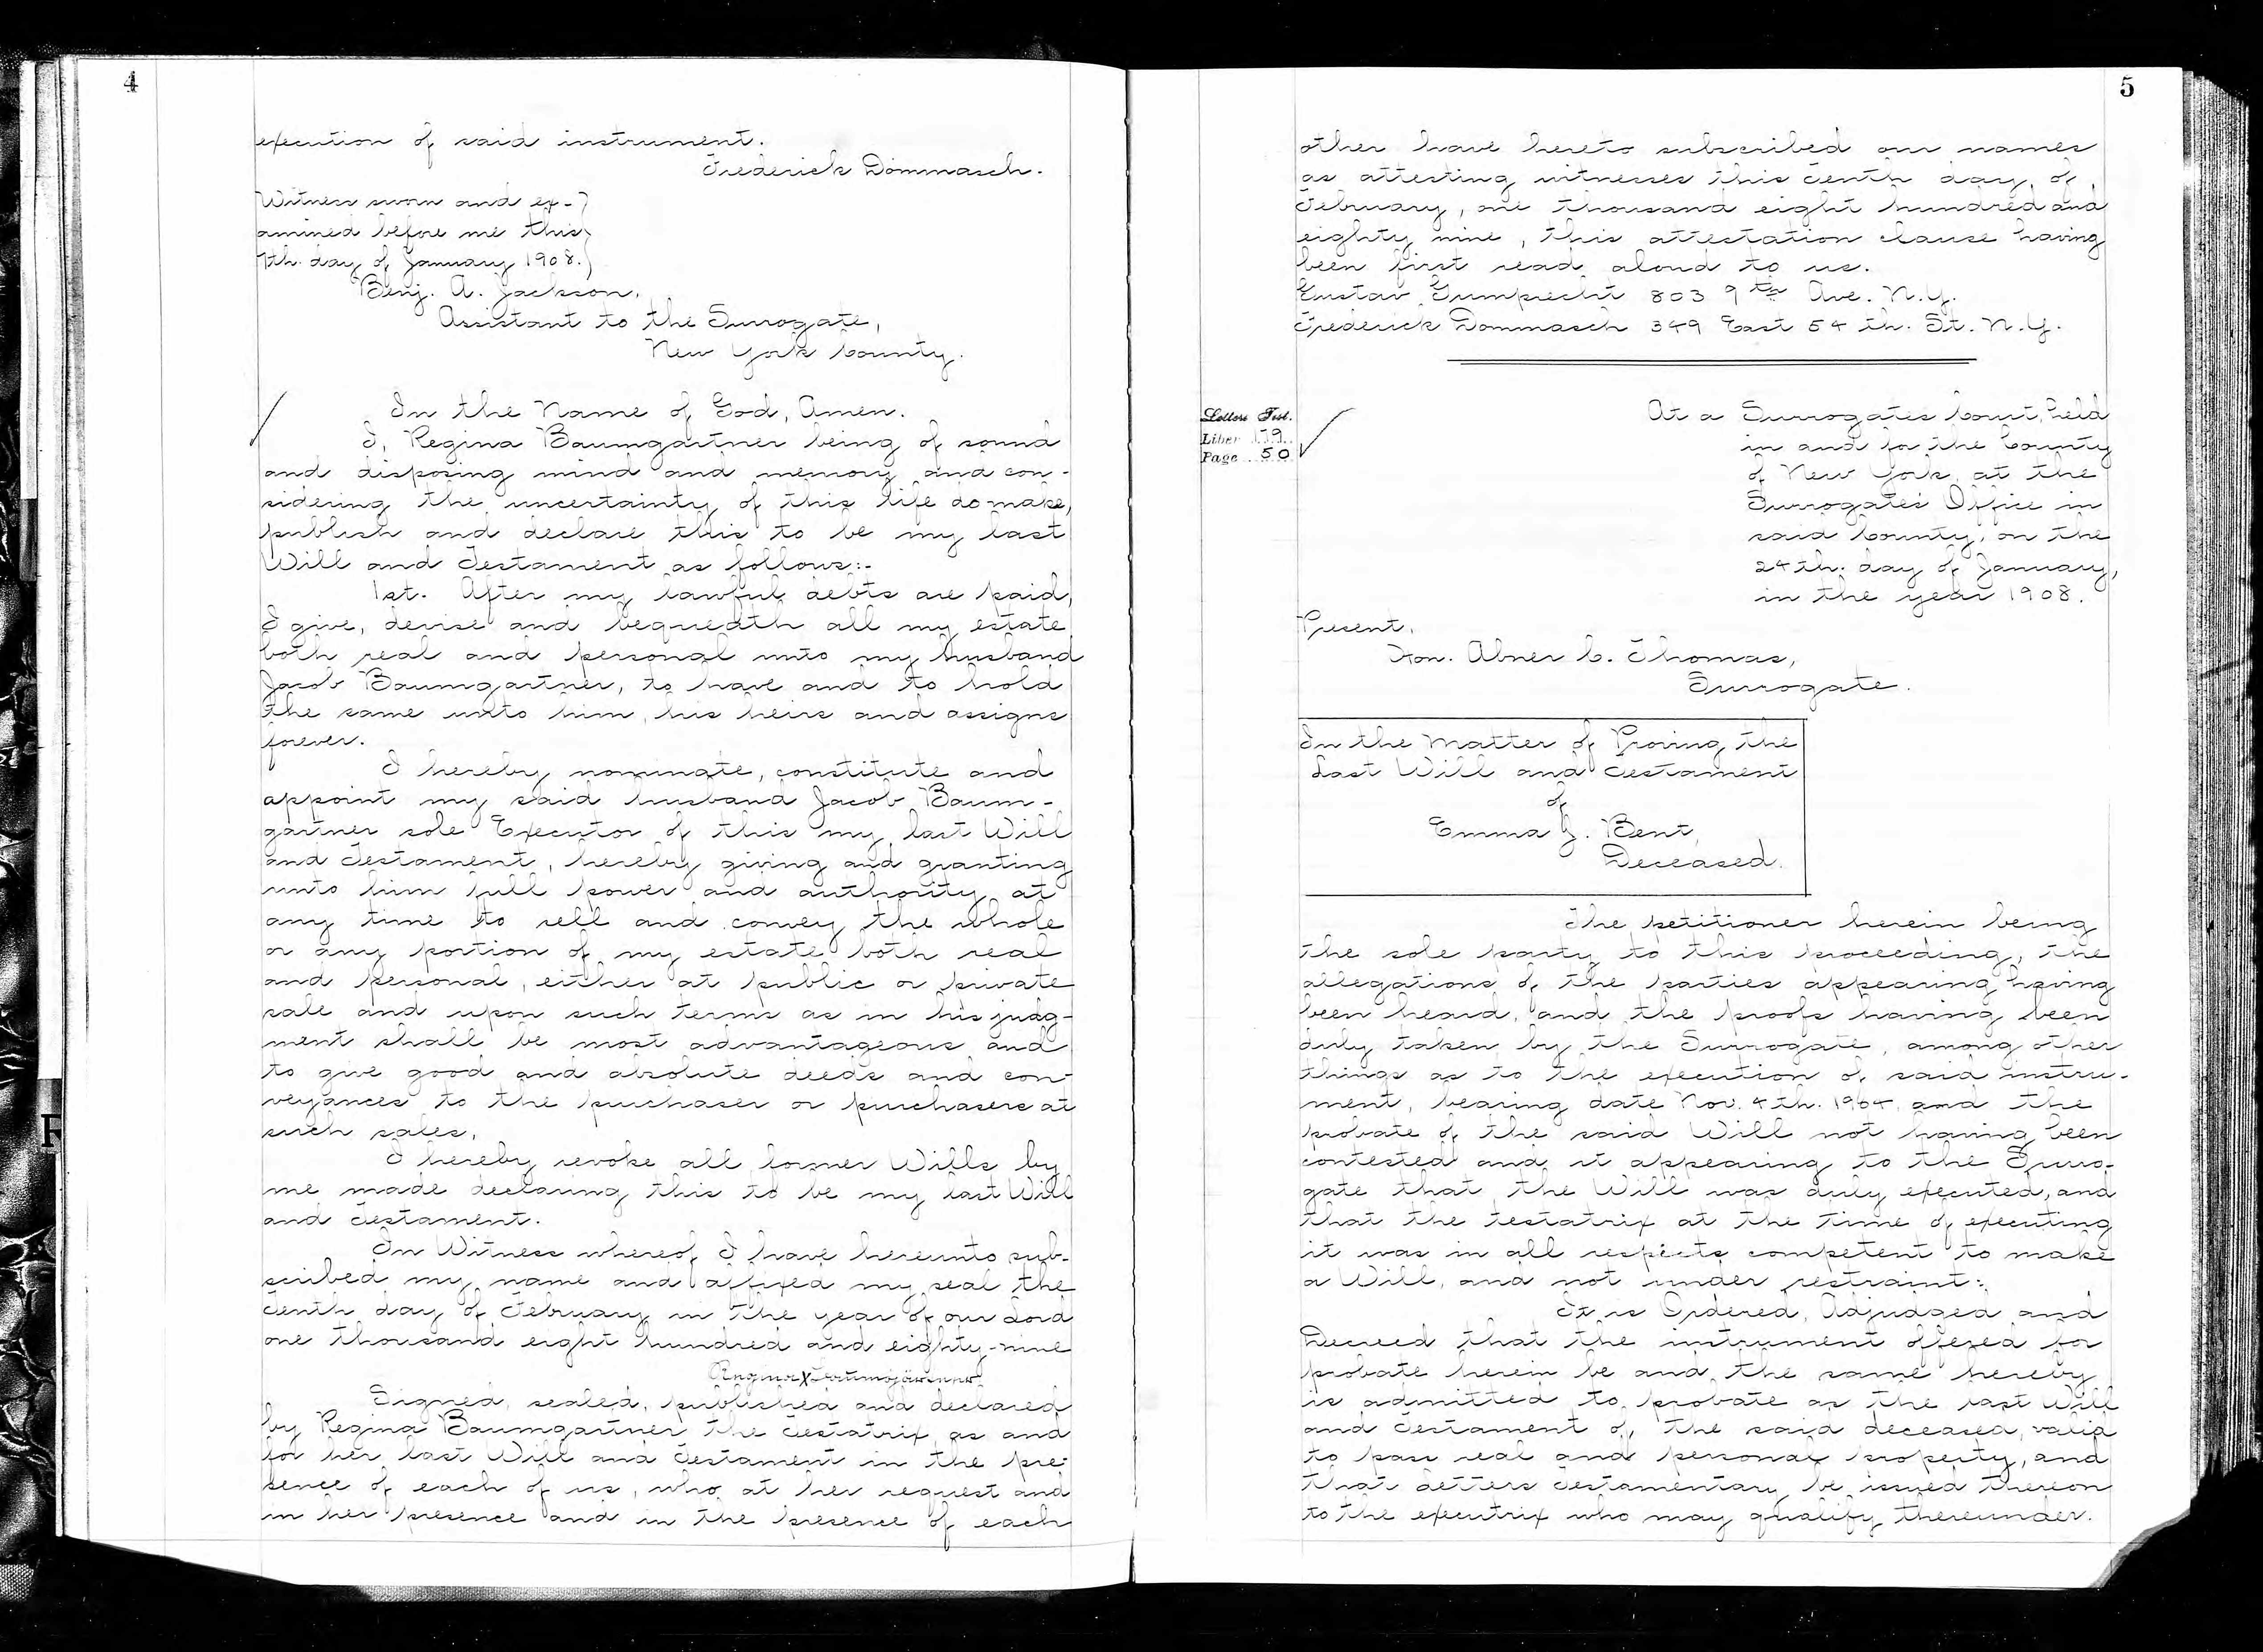 4
execution of said instrument.
Frederick Dommasch.
Witness sworn and ex-
amined before me this
7th. day of January 1908.
Benj. A. Jackson,
Assistant to the Surrogate,
New York County.
In the Name of God, Amen.
I, Regina Baumgartner being of sound
and disposing mind and memory and con-
sidering the uncertainty of this life do make,
publish and declare this to be my last
Will and Testament as follows:-
1st. After my lawful debts are paid,
I give, devise and bequeath all my estate
both real and personal unto my husband
Jacob Baumgartner, to have and to hold
the same unto him, his heirs and assigns
forever.
I hereby nominate, constitute and
appoint my said husband Jacob Baum-
gartner sole Executor of this my last Will
and Testament, hereby giving and granting
unto him full power and authority at
any time to sell and convey the whole
or any portion of my estate both real
and personal, either at public or private
sale and upon such terms as in his judg-
ment shall be most advantageous and
to give good and absolute deeds and con-
veyances to the purchaser or purchasers at
such sales.
I hereby revoke all former Wills by
me made declaring this to be my last Will
and Testament.
In Witness whereof, I have hereunto sub-
scribed my name and affixed my seal the
Tenth day of February in the year of our Lord
one thousand eight hundred and eighty-nine
Regina X Baumgärtner
Signed, sealed, published and declared
by Regina Baumgartner the Testatrix as and
for her last Will and Testament in the pre-
sence of each of us, who at her request and
in her presence and in the presence of each
5
other have hereto subscribed our names
as attesting witnesses this Tenth day of
February, one thousand eight hundred and
eighty nine, this attestation clause having
been first read aloud to us.
Gustav Gumprecht 803 9th Ave. N.Y.
Frederick Dommasch 349 East 54 th. St. N.Y.
Letters Test.
Liber 19
Page 50
At a Surrogates Court, held
in and for the County
of New York, at the
Surrogate's Office in
said County, on the
24th. day of January,
in the year 1908.
Present,
Hon. Abner C. Thomas,
Surrogate.
In the Matter of Proving the
Last Will and Testament
of
Emma J. Bent,
Deceased.
The petitioner herein being
the sole party to this proceeding, the
allegations of the parties appearing having
been heard, and the proofs having been
duly taken by the Surrogate, among other
things as to the execution of said instru-
ment, bearing date Nov. 4th. 1904, and the
probate of the said Will not having been
contested and it appearing to the Surro-
gate that the Will was duly executed, and
that the testatrix at the time of executing
it was in all respects competent to make
a Will, and not under restraint:
It is Ordered, Adjudged and
Decreed that the instrument offered for
probate herein be and the same hereby
is admitted to probate as the last Will
and Testament of the said deceased, valid
to pass real and personal property, and
that Letters Testamentary be issued thereon
to the executrix who may qualify thereunder.